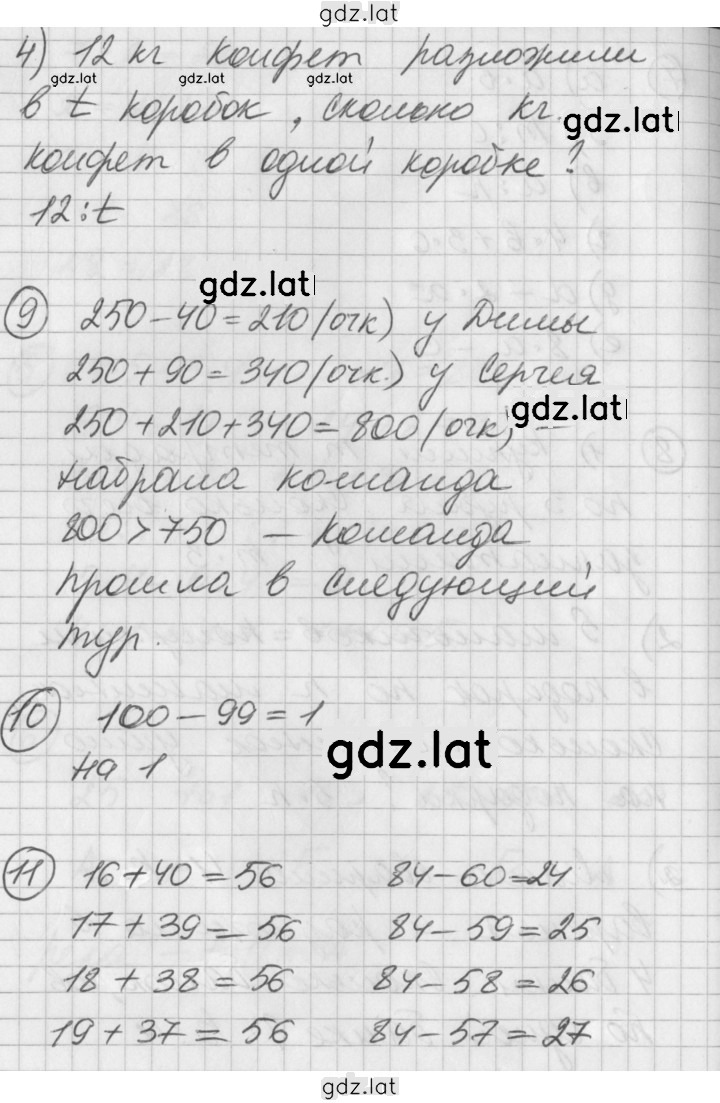 gdz.lat
4) 12 кг конфет разложили
gdz.lat gdz.lat gdz.lat
в t коробок, сколько кг
gdz.lat
конфет в одной коробке?
12:t
gdz.lat
9 250-40=210(очк) у Димы
250+90=340(очк.) у Сергея
gdz.lat
250+210+340=800(очк) —
набрала команда
800>750 — команда
прошла в следующий
тур.
10 100-99=1
gdz.lat
на 1
11 16+40=56 84-60=24
17+39=56 84-59=25
18+38=56 84-58=26
19+37=56 84-57=27
gdz.lat